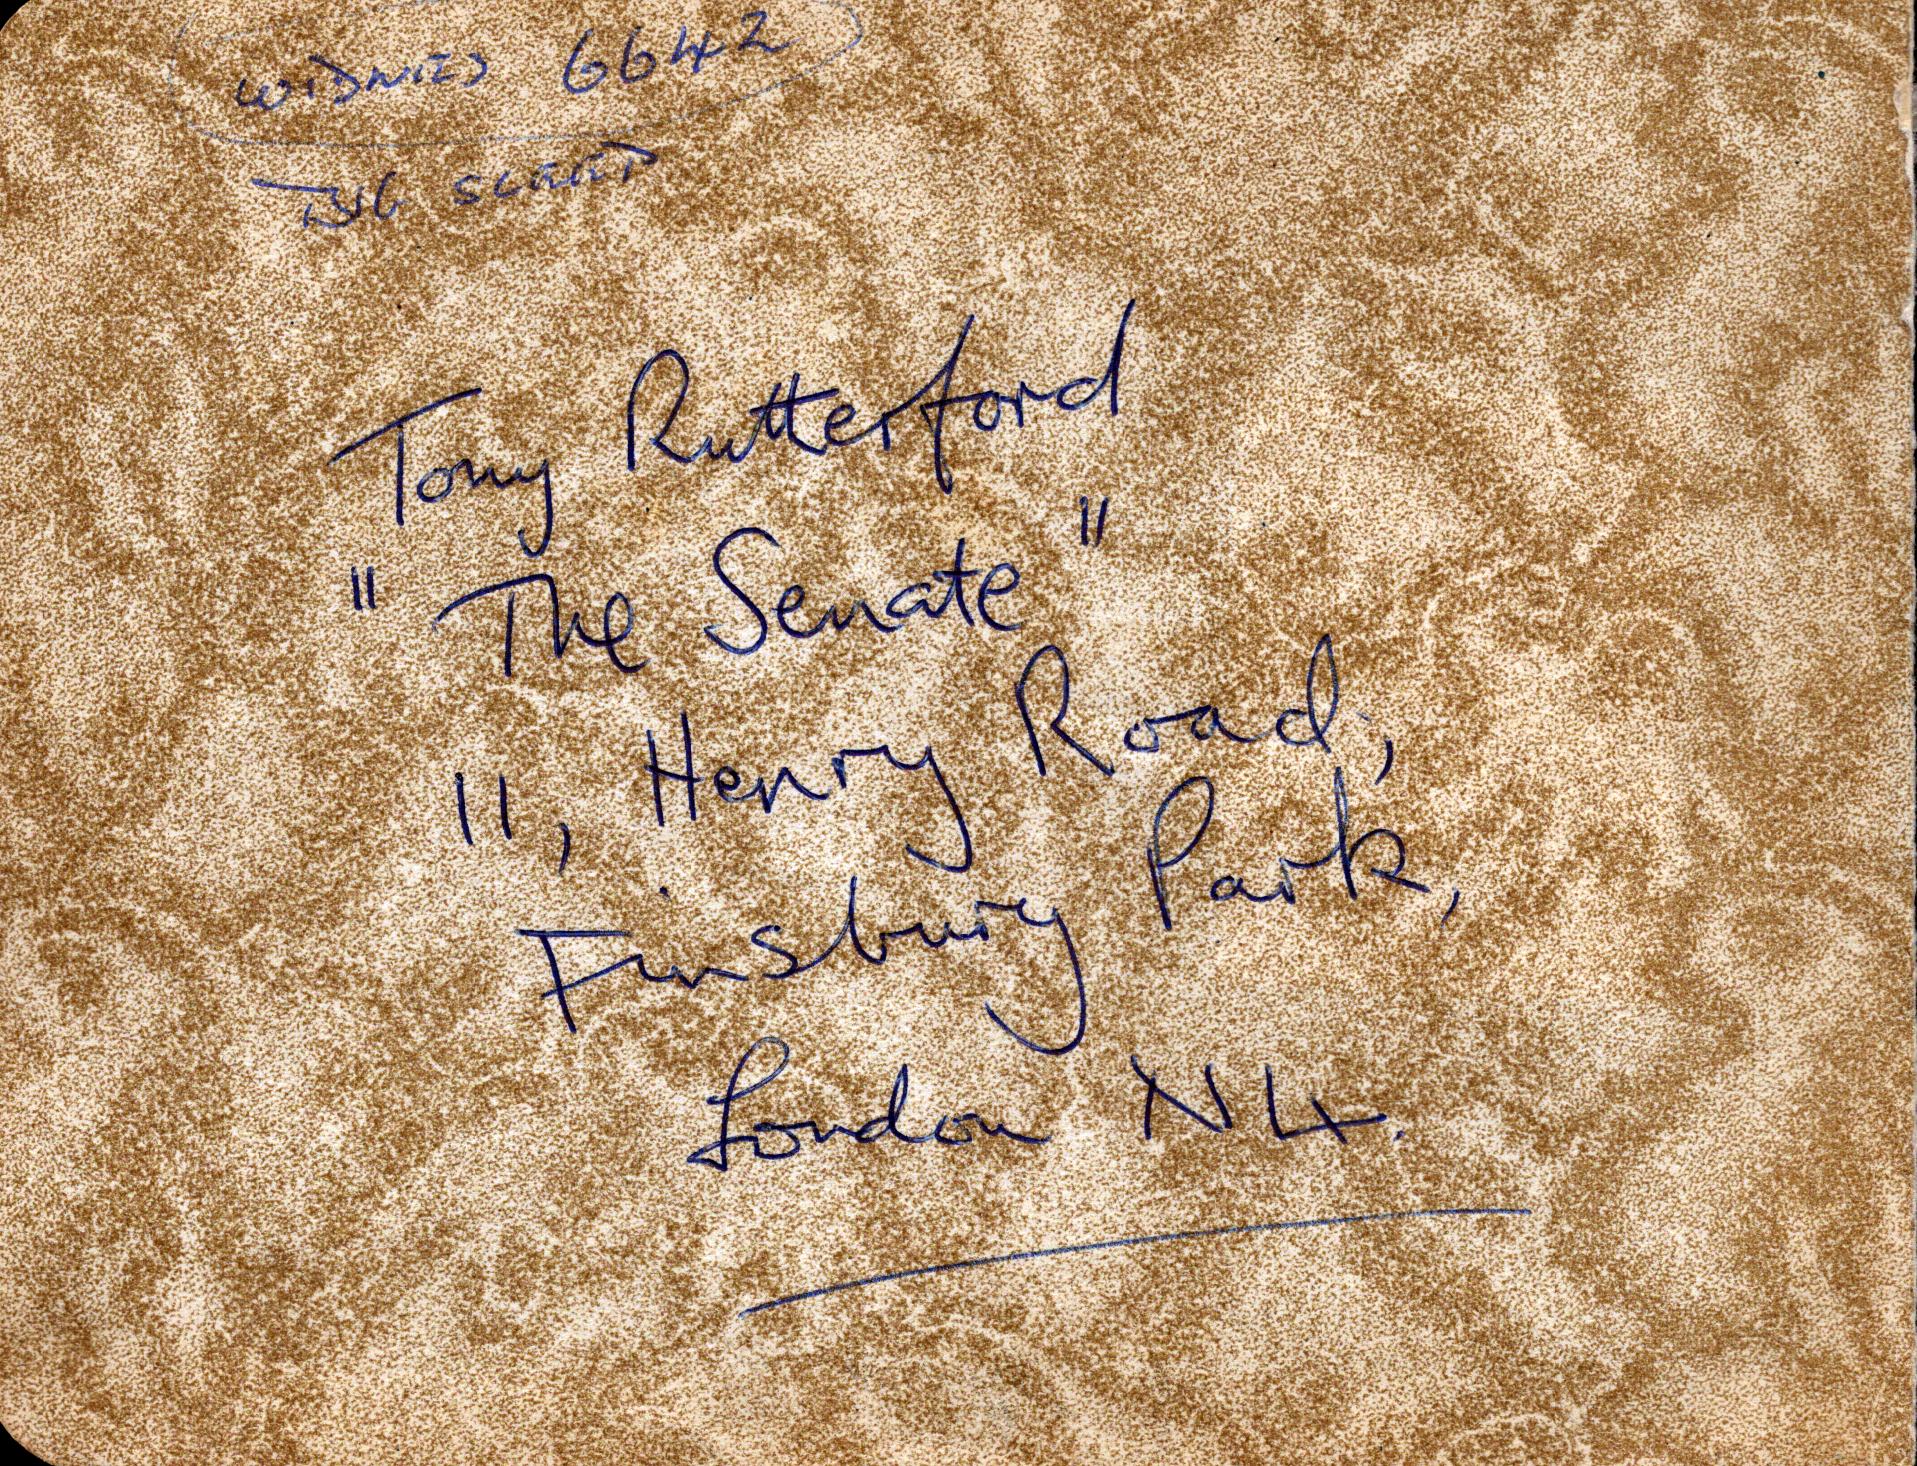 WIDNES 6642
BIG SLEEP
Tony Rutterford
"The Senate"
11, Henry Road,
Finsbury Park,
London N4.